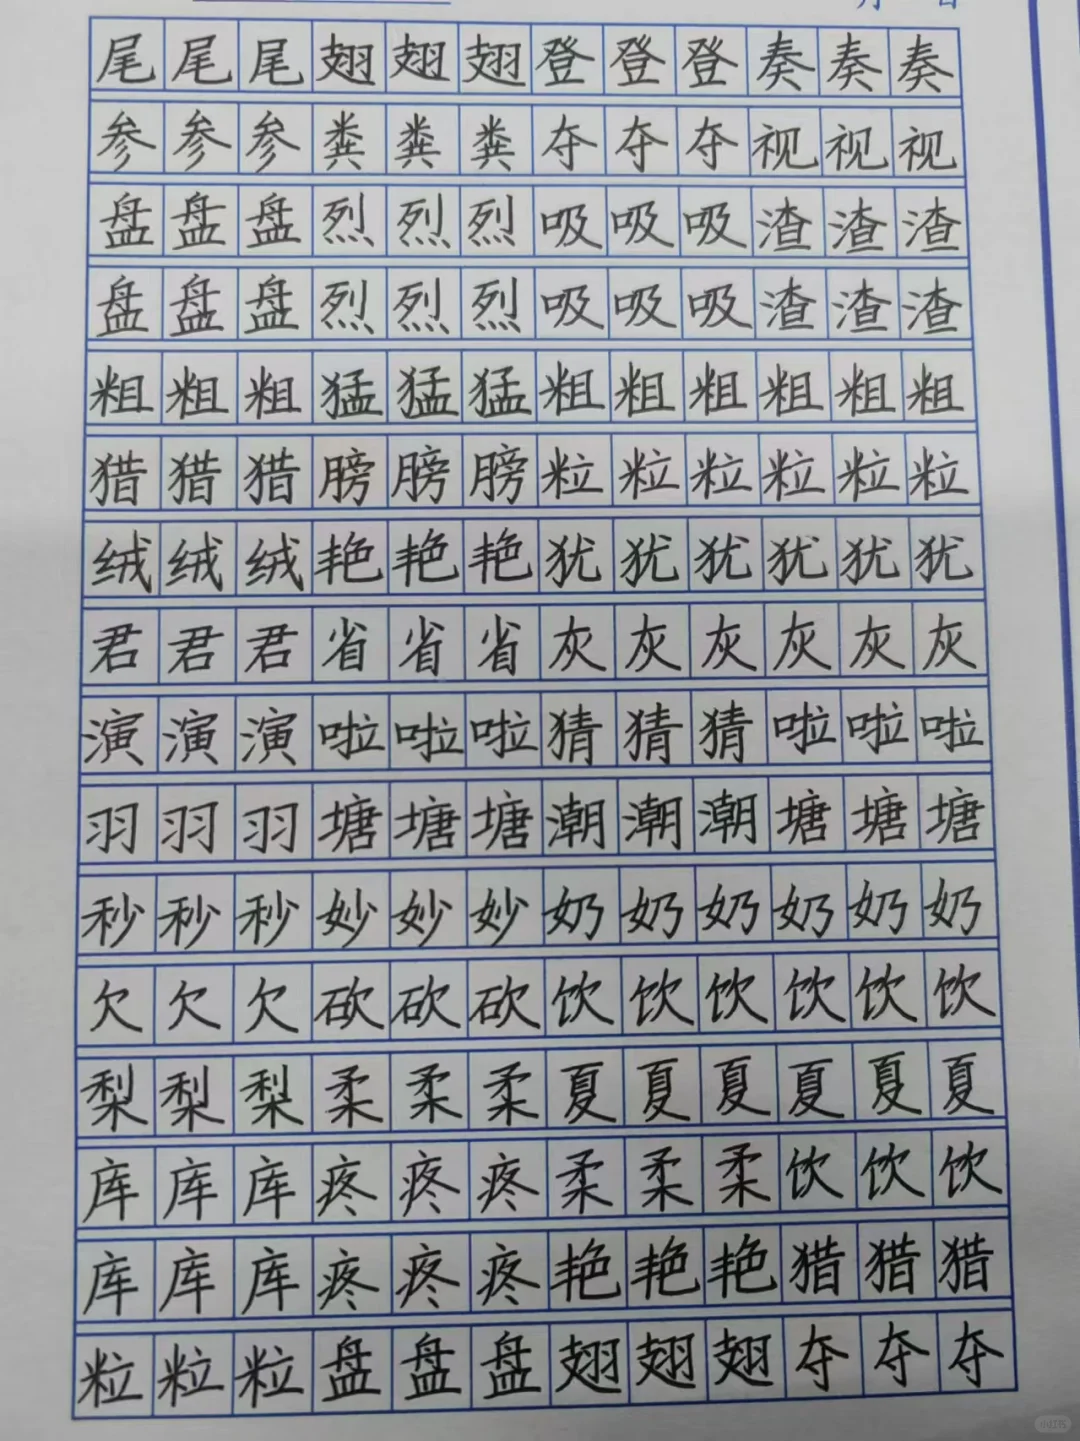 月 日
尾尾尾翅翅翅登登登奏奏奏
参参参粪粪粪夺夺夺视视视
盘盘盘烈烈烈吸吸吸渣渣渣
盘盘盘烈烈烈吸吸吸渣渣渣
粗粗粗猛猛猛粗粗粗粗粗粗
猎猎猎膀膀膀粒粒粒粒粒粒
绒绒绒艳艳艳犹犹犹犹犹犹
君君君省省省灰灰灰灰灰灰
演演演啦啦啦猜猜猜啦啦啦
羽羽羽塘塘塘潮潮潮塘塘塘
秒秒秒妙妙妙奶奶奶奶奶奶
欠欠欠砍砍砍饮饮饮饮饮饮
梨梨梨柔柔柔夏夏夏夏夏夏
库库库疼疼疼柔柔柔饮饮饮
库库库疼疼疼艳艳艳猎猎猎
粒粒粒盘盘盘翅翅翅夺夺夺
小红书